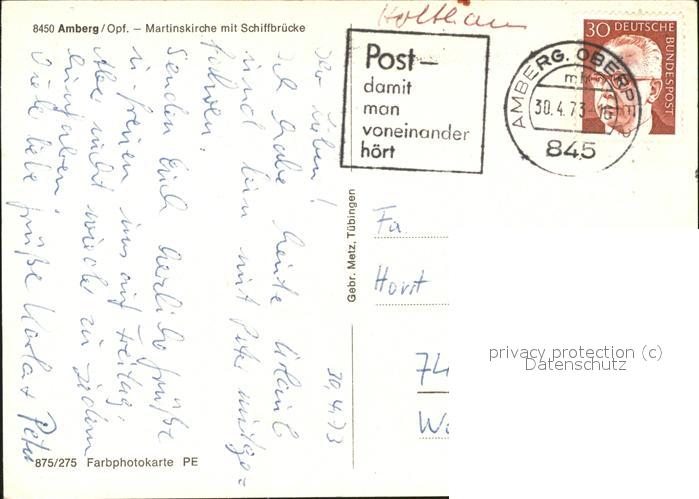 8450 Amberg/Opf. – Martinskirche mit Schiffbrücke
Holthaus
Post–
damit
man
voneinander
hört
AMBERG, OBERPF
30.4.73-16
845
30 DEUTSCHE BUNDESPOST
30.4.73
Ihr Lieben!
Ich habe heute Urlaub
und bin mit Peter mitge=
fahren.
Senden Euch herzliche Grüße
u. freuen uns auf Freitag.
Aber nicht wieder zu
Viele liebe Grüße + Peter
Gebr. Metz, Tübingen
Fa
Horst
74
W
privacy protection (c)
Datenschutz
875/275 Farbphotokarte PE